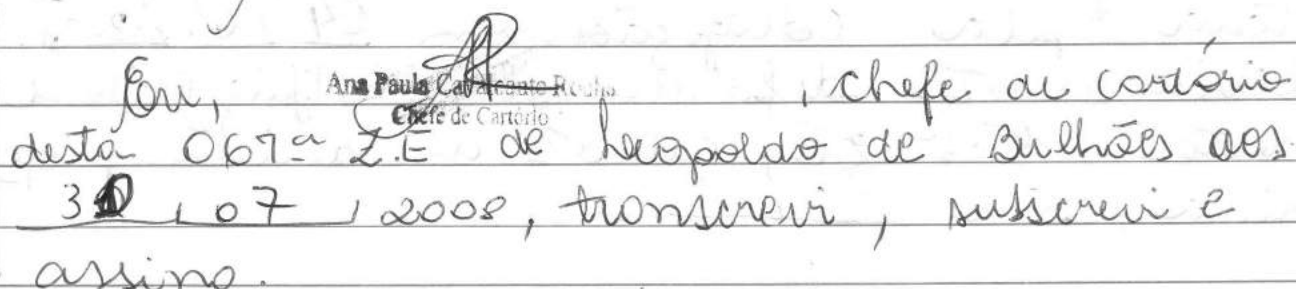 Eu, Ana Paula Cavalcante Rocha, chefe de cartório
Chefe de Cartório
desta 067ª Z.E de Leopoldo de Bulhões aos
/ 07 / 2008, transcrevi, subscrevi e
assino.